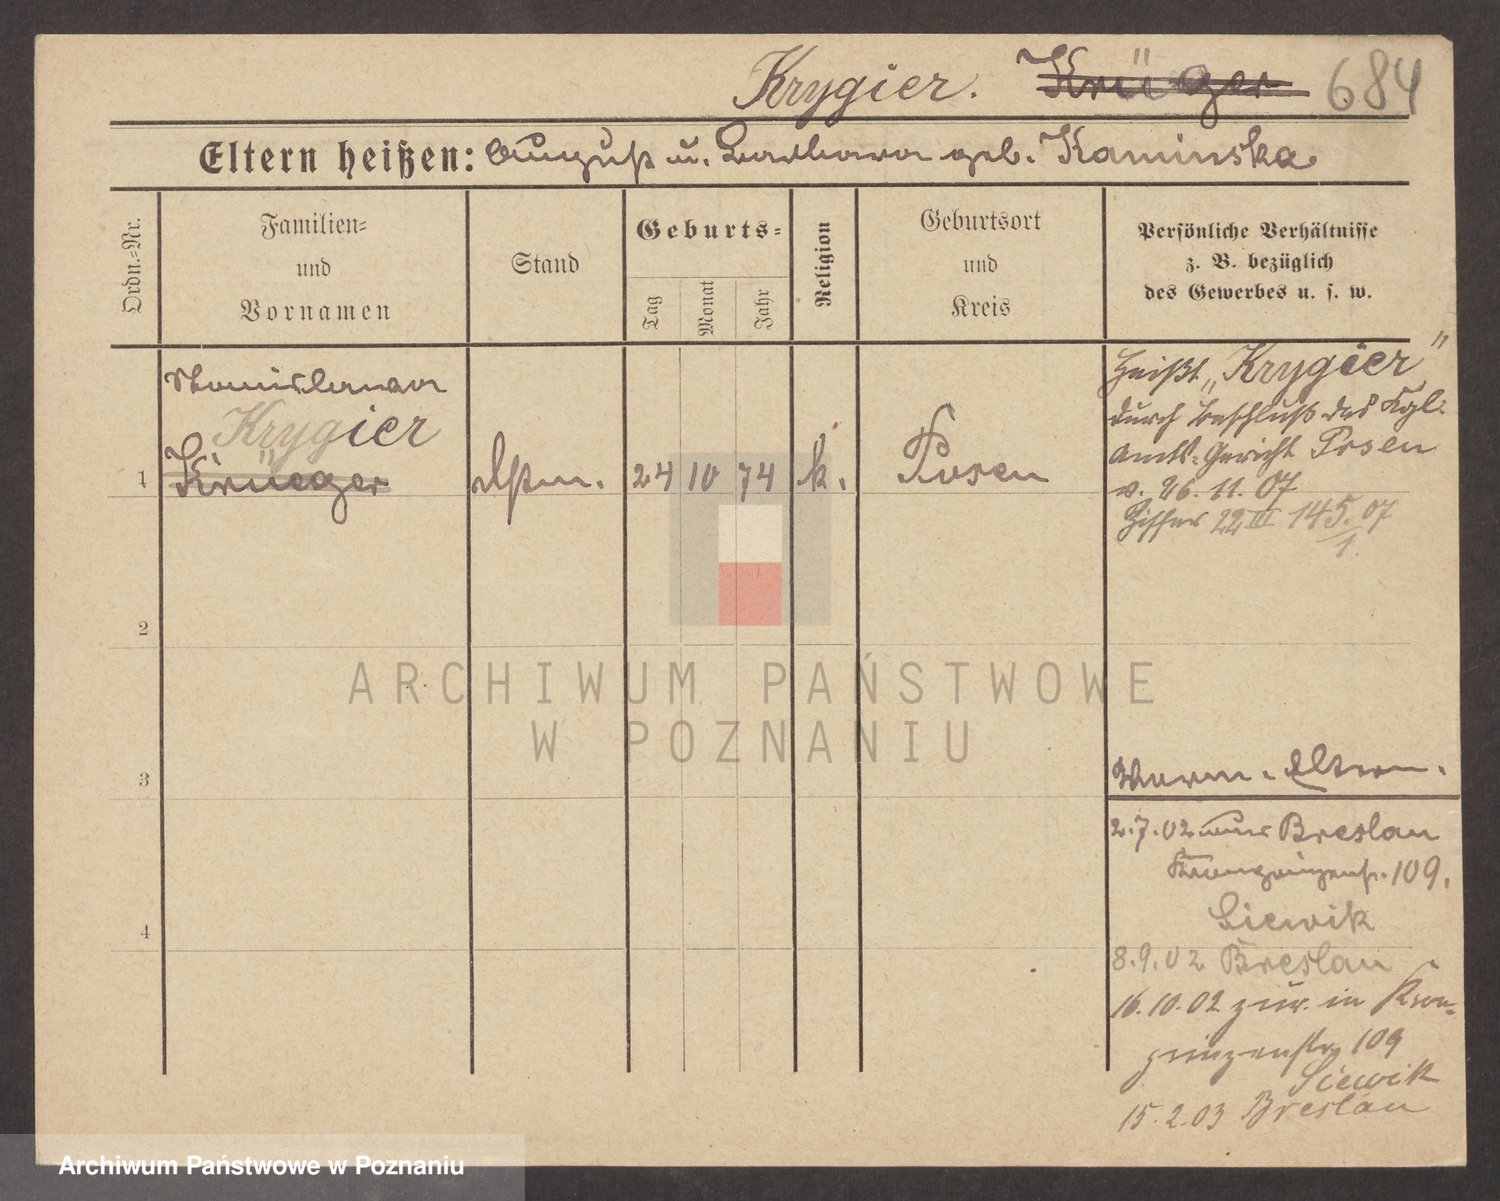 Krygier. Krüger 684
Eltern heißen: August u. Barbara geb. Kaminska
Ordn.-Nr.
Familien-
und
Vornamen
Stand
Geburts-
Tag
Monat
Jahr
Religion
Geburtsort
und
Kreis
Persönliche Verhältnisse
z. B. bezüglich
des Gewerbes u. s. w.
Stanislawa
Krygier
Krueger
1
24 10 74 k.
Posen
heißt „Krygier"
durch Beschluß des Kgl.
Amts-Gericht Posen
v. 26. 11. 07
Ziffer 22 III 145. 07
1.
2
3
4
ARCHIWUM PAŃSTWOWE
W POZNANIU
Eltern.
2.7.02 aus Breslau
Kronprinzenstr. 109.
Siewik
8.9.02 Breslau
16.10.02 zur. in Kron-
prinzenstr 109
Siewik
15.2.03 Breslau
Archiwum Państwowe w Poznaniu